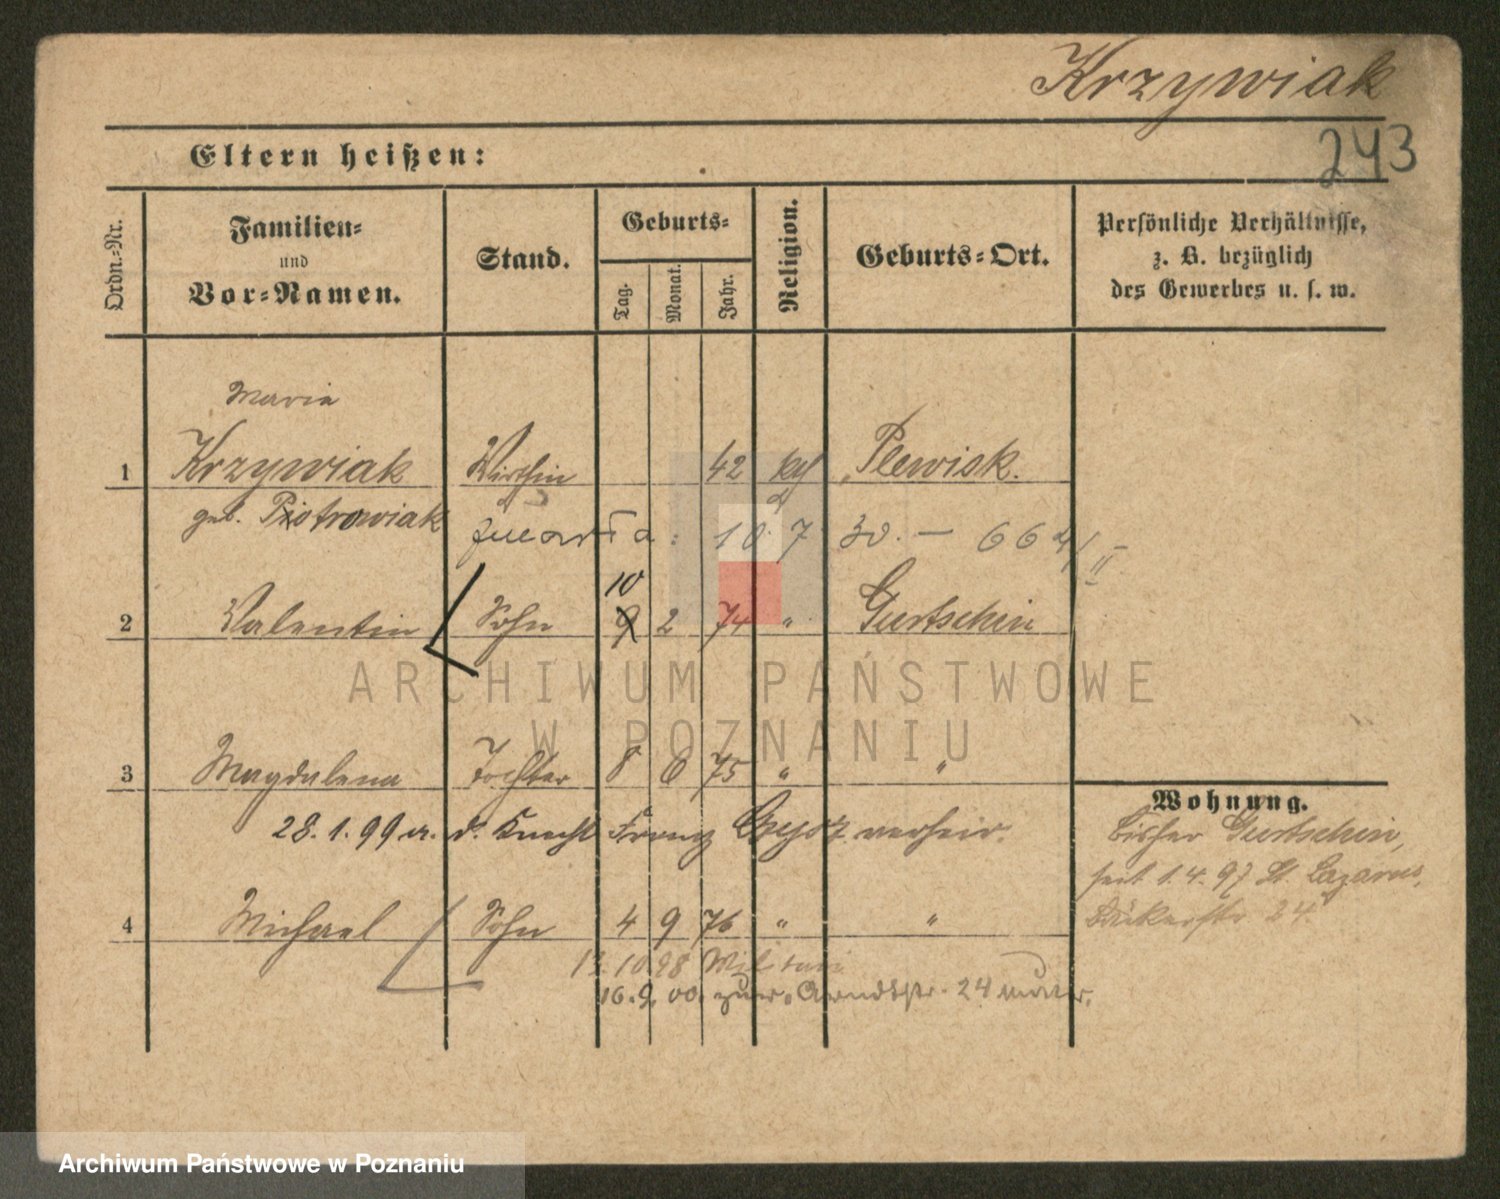 Krzywiak
243
Eltern heißen:
Ordn.-Nr.
Familien-
und
Vor-Namen.
Stand.
Geburts-
Tag.
Monat.
Jahr.
Religion.
Geburts-Ort.
Persönliche Verhältnisse,
z. B. bezüglich
des Gewerbes u. s. w.
Maria
1 Krzywiak Wirthin 42 kth Plewisk.
geb. Piotrowiak
10 7 30. — 664/II
10
2 Valentin Sohn 9 2 74 " Gurtschin
ARCHIWUM PAŃSTWOWE
W POZNANIU
3 Magdalena Tochter 8 6 75 " "
28. 1. 99 a. d. Knecht Franz verheir.
Wohnung.
bisher Gurtschin,
seit 1.4.97 St. Lazarus,
Bäckerstr. 24.
4 Michael Sohn 4 9 76 " "
10 98 Militair
16. 9. 00. zur. Arndtstr. 24
Archiwum Państwowe w Poznaniu